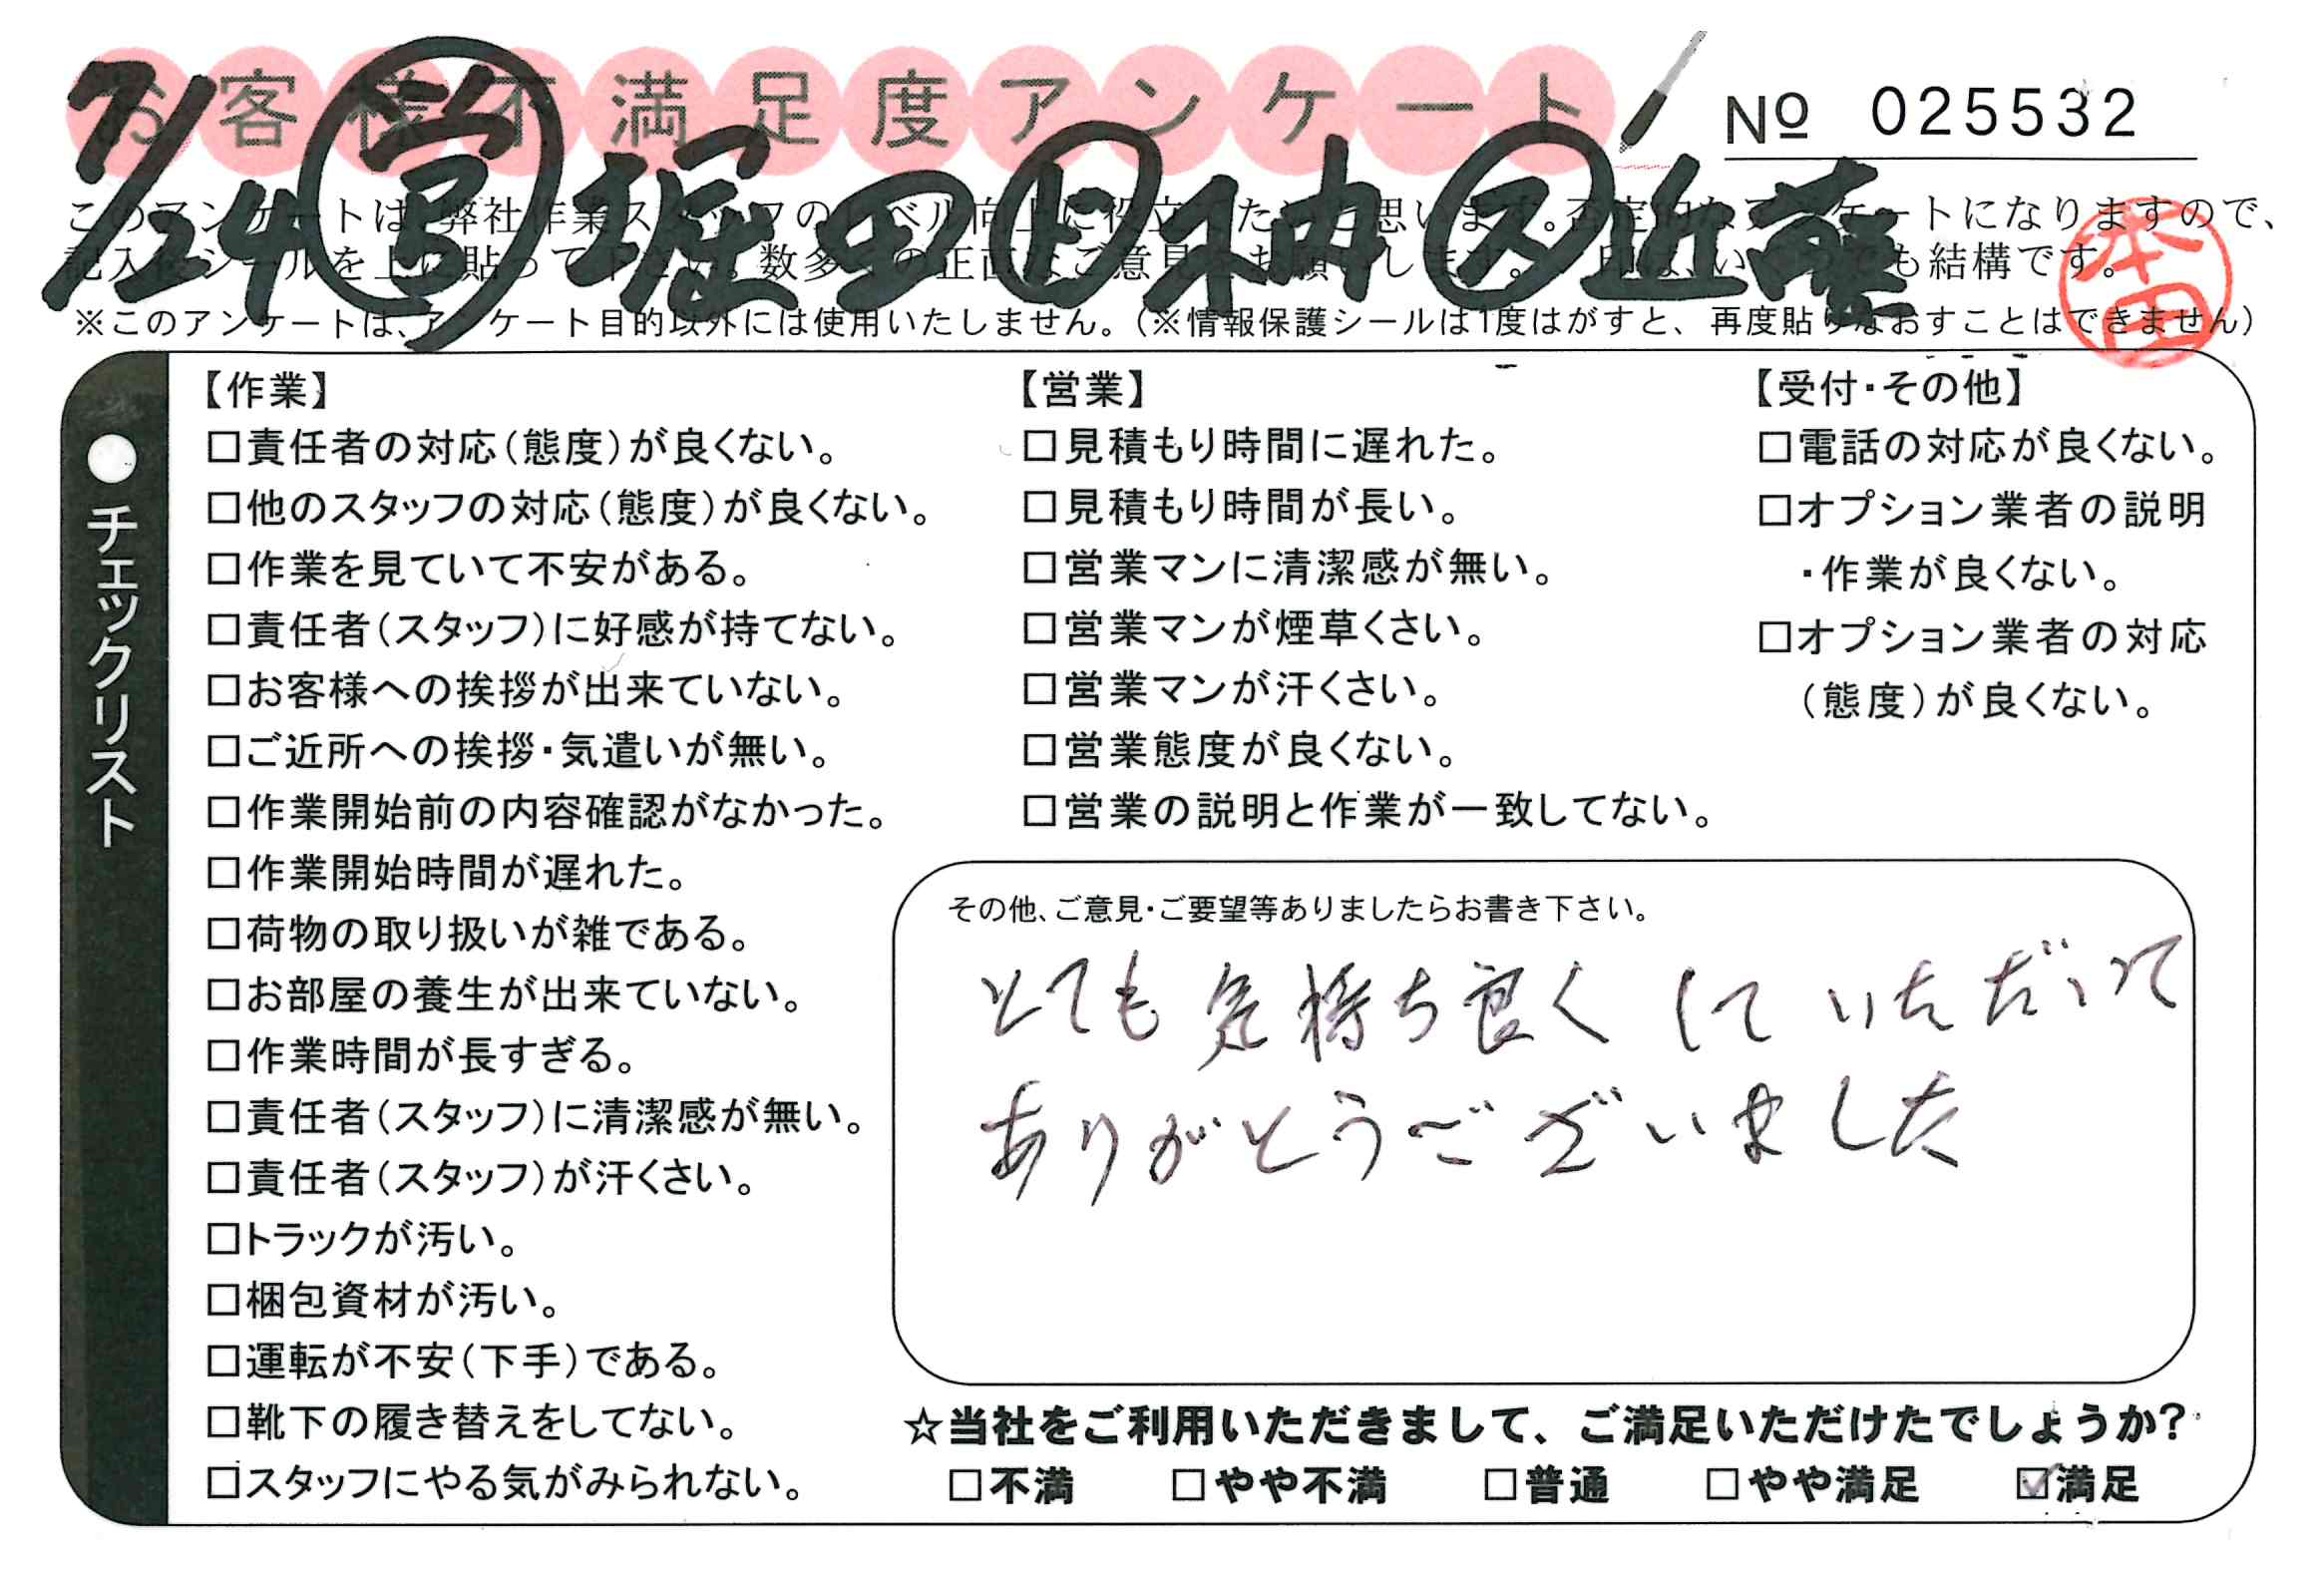 お客様不満足度アンケート
№ 025532
7/24 営 堀田 ト 木内 ス 近藤
本田
※このアンケートは、アンケート目的以外には使用いたしません。（※情報保護シールは1度はがすと、再度貼りなおすことはできません）
●チェックリスト
【作業】
□責任者の対応（態度）が良くない。
□他のスタッフの対応（態度）が良くない。
□作業を見ていて不安がある。
□責任者（スタッフ）に好感が持てない。
□お客様への挨拶が出来ていない。
□ご近所への挨拶・気遣いが無い。
□作業開始前の内容確認がなかった。
□作業開始時間が遅れた。
□荷物の取り扱いが雑である。
□お部屋の養生が出来ていない。
□作業時間が長すぎる。
□責任者（スタッフ）に清潔感が無い。
□責任者（スタッフ）が汗くさい。
□トラックが汚い。
□梱包資材が汚い。
□運転が不安（下手）である。
□靴下の履き替えをしてない。
□スタッフにやる気がみられない。
【営業】
□見積もり時間に遅れた。
□見積もり時間が長い。
□営業マンに清潔感が無い。
□営業マンが煙草くさい。
□営業マンが汗くさい。
□営業態度が良くない。
□営業の説明と作業が一致してない。
【受付・その他】
□電話の対応が良くない。
□オプション業者の説明
・作業が良くない。
□オプション業者の対応
（態度）が良くない。
その他、ご意見・ご要望等ありましたらお書き下さい。
とても気持ち良くしていただいて
ありがとうございました
☆当社をご利用いただきまして、ご満足いただけたでしょうか？
□不満 □やや不満 □普通 □やや満足 ☑満足